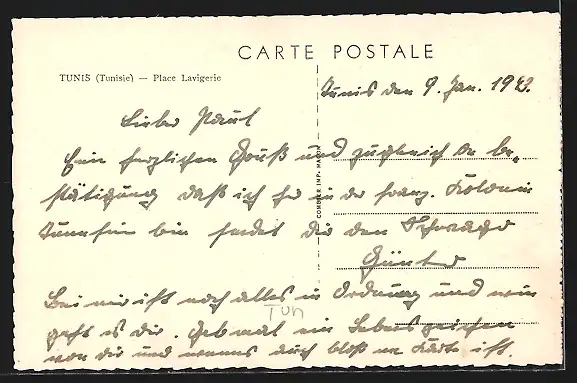 CARTE POSTALE
TUNIS (Tunisie) — Place Lavigerie
Tunis den 9. Jan. 1943.
Lieber Paul
Ein herzlichen Gruß und zugleich die be-
stätigung daß ich hier in der franz. Kolonie
Tunesien bin sendet dir den Schwager
Günter
Bei mir ist noch alles in Ordnung und wie
geht es dir. Geb mal ein Lebenszeichen
von dir und wenns auch bloß ne Karte ist.
Tun
COMBIER IMP. MACON